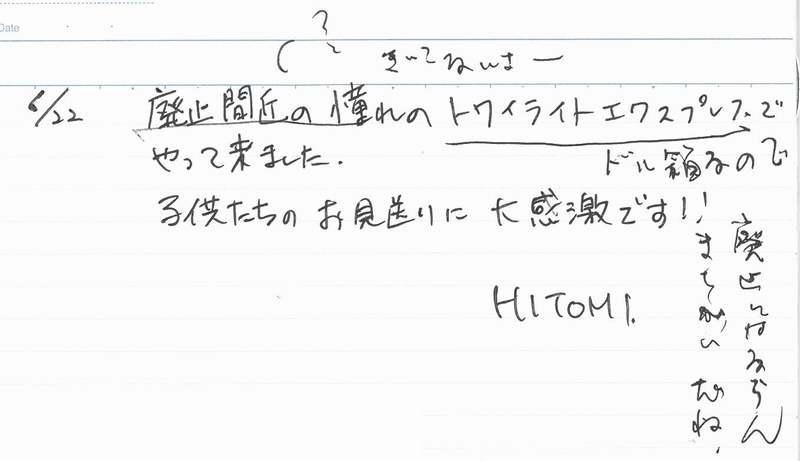 Date
?
きいてないよー
6/22 廃止間近の憧れのトワイライトエクスプレスで
やって来ました.
ドル箱なので
子供たちのお見送りに大感激です!!
廃止にはならん
まちがいだね.
HITOMI.